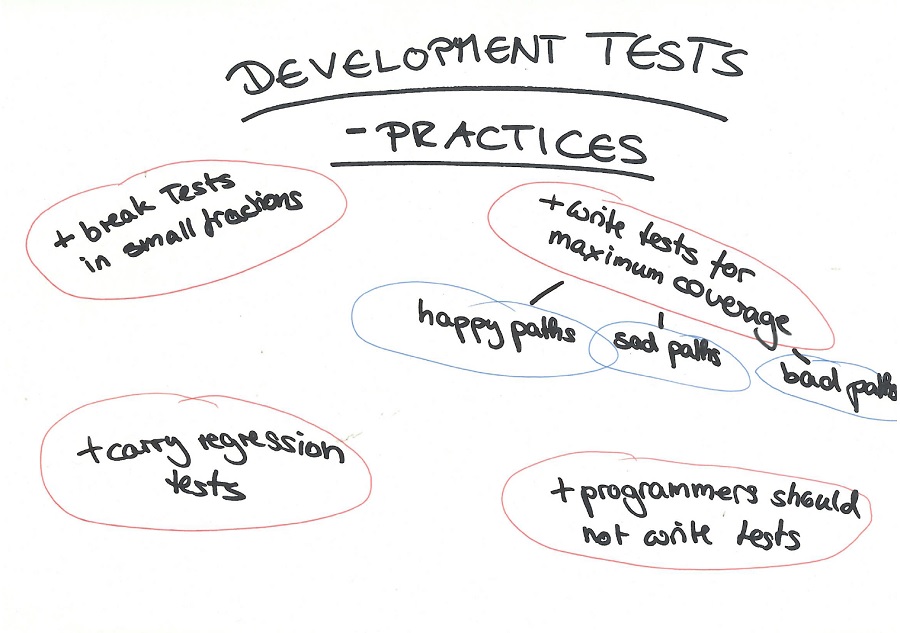 DEVELOPMENT TESTS
- PRACTICES
+ break Tests
in small fractions
+ write tests for
maximum coverage
happy paths
sad paths
bad paths
+ carry regression
tests
+ programmers should
not write tests